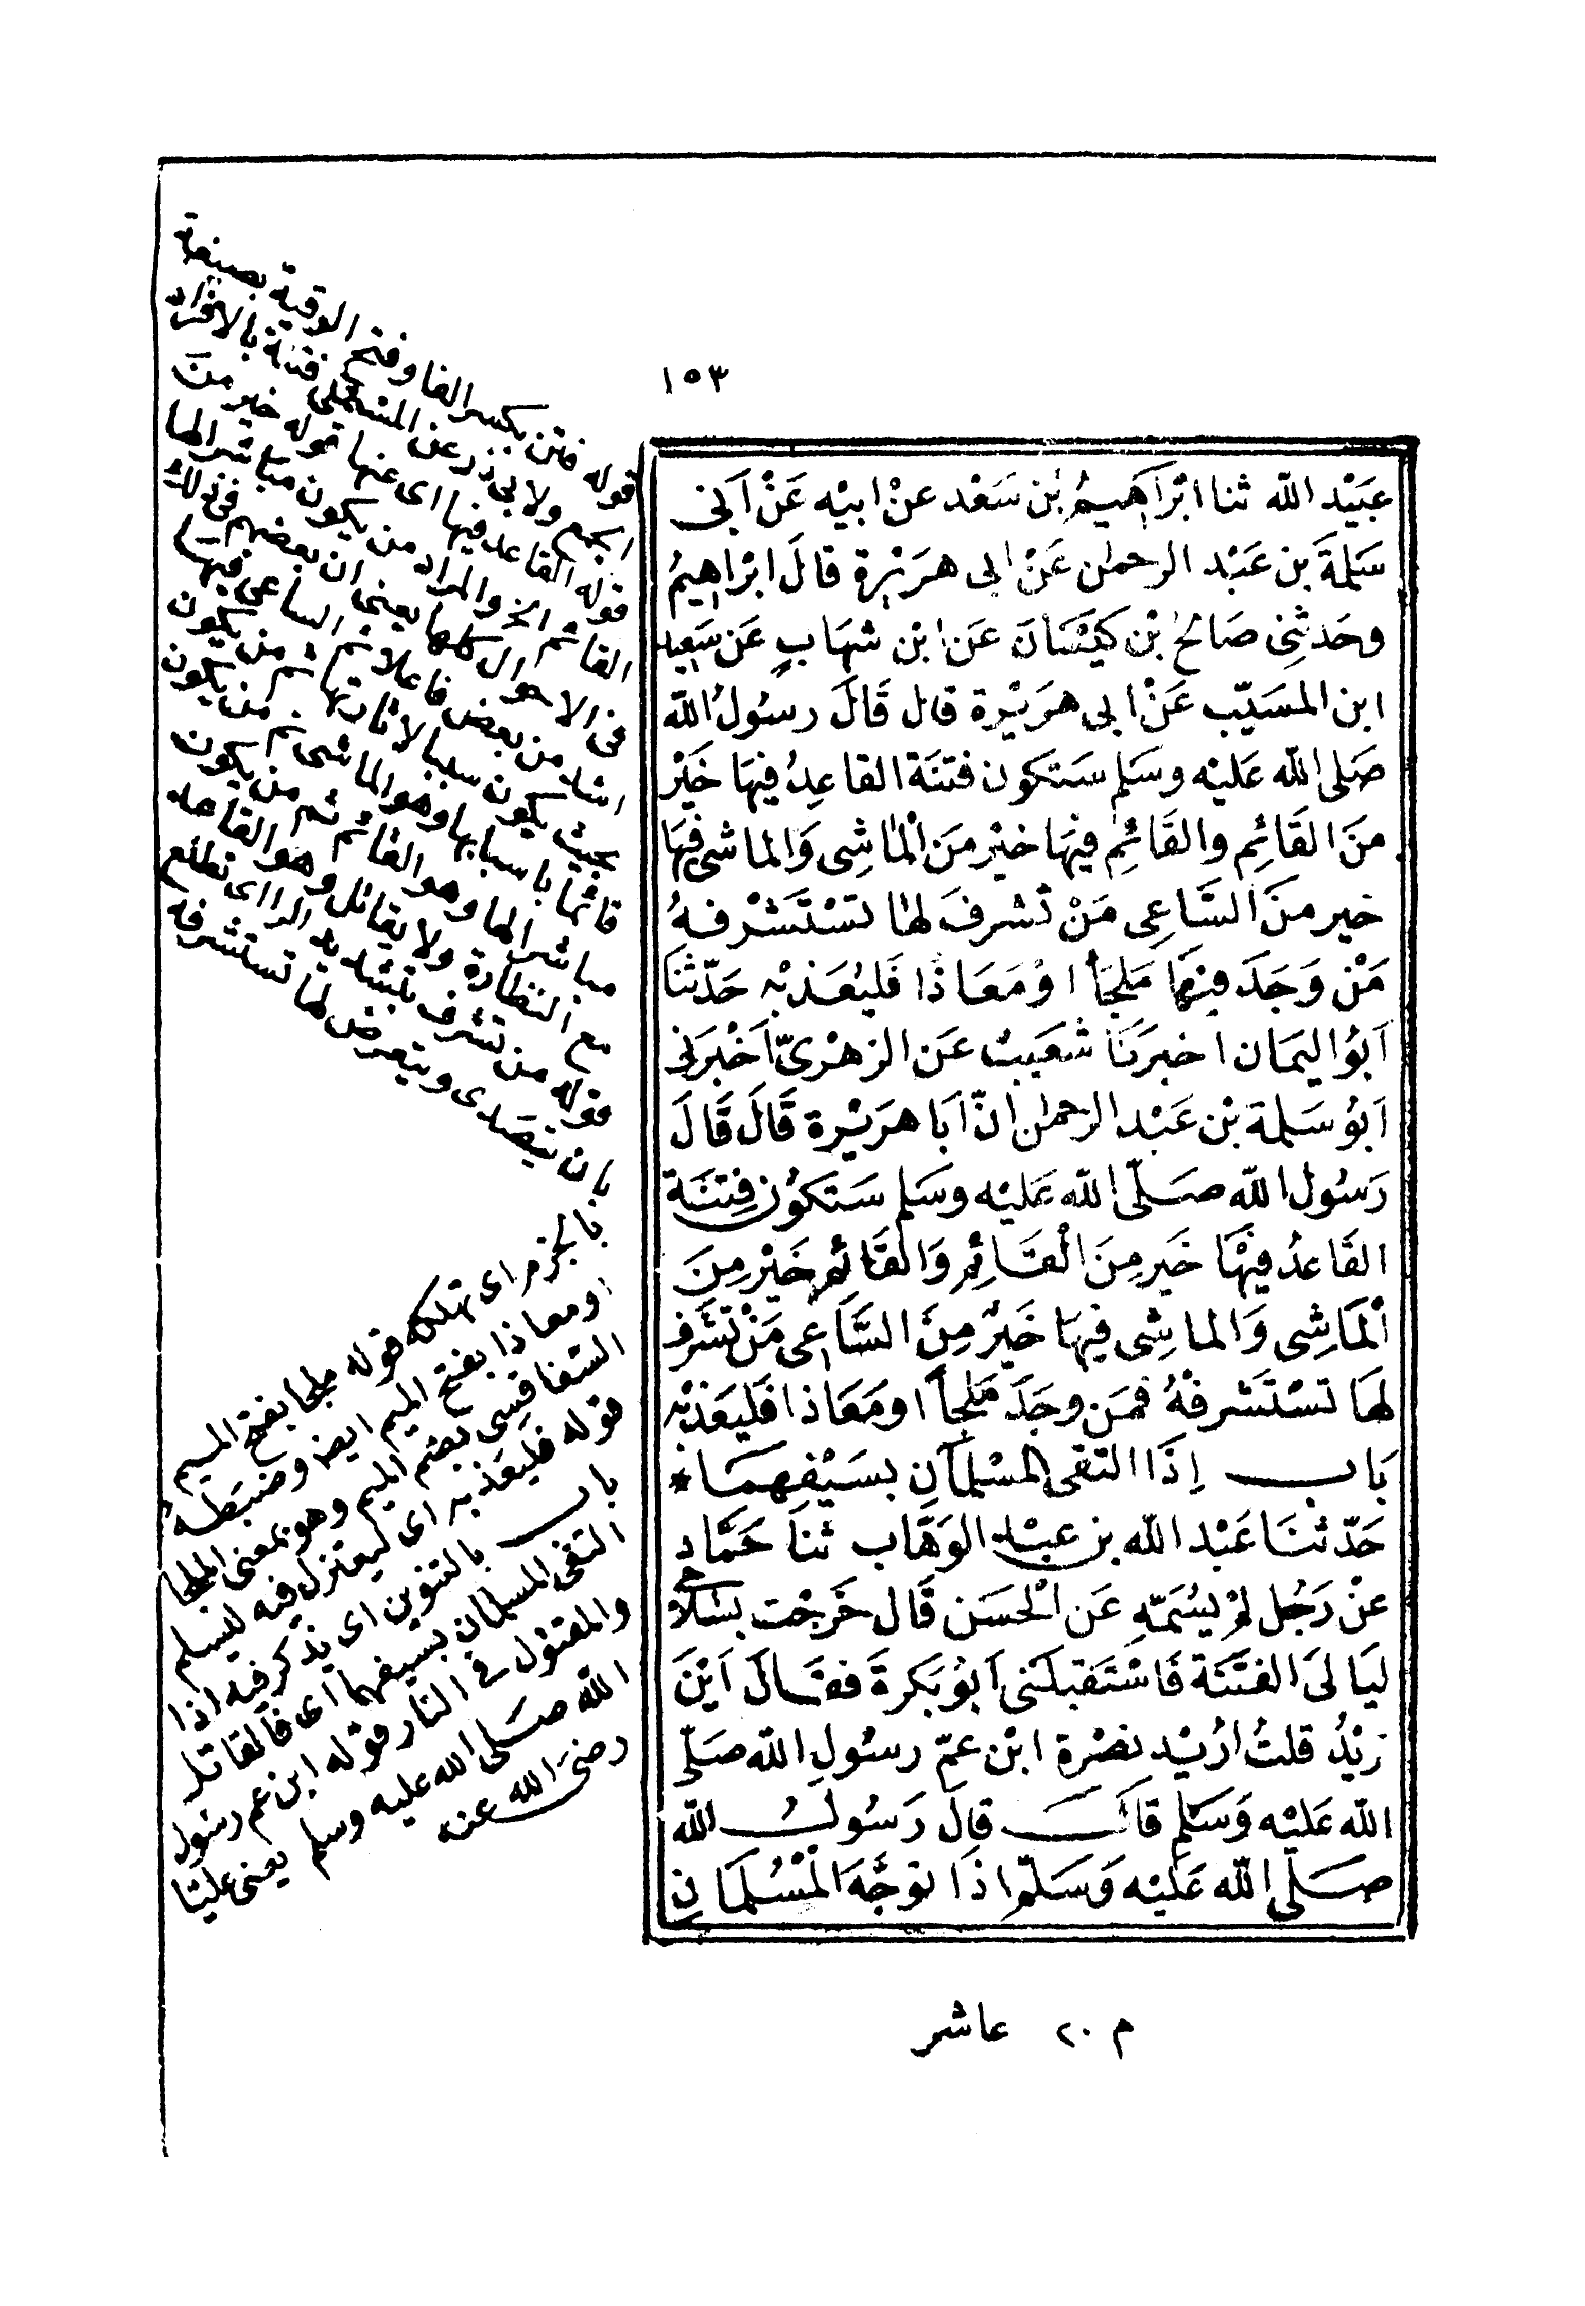 ١٥٣
عبَيْد الله ثنا ابْرَاهيمُ بْن سَعْد عنْ ابيْه عَنْ اَبى
سَلمةَ بن عَبْد الرحمٰن عَنْ ابى هرَيْرة قالَ ابْراهِيمُ
وحَدثنِى صَالحُ بْن كيْسَانَ عَن ابْن شهَابٍ عَن سَعِيد
ابن المسَيّب عَنْ ابى هرَيْرة قال قَالَ رسُولُ الله
صَلى الله عَليْه وسَلم سَتكون فتنَة القاعِدُ فيهَا خَيْر
منَ القَائِم والقَائِم فيهَا خيْر منَ الْمَاشِى وَالماشى فيهَا
خير منَ السَّاعِى مَنْ تَشرفَ لهَا تسْتَشْرفهُ
مَنْ وَجَدَ فيهَا مَلجَأ اوْ مَعَاذًا فَليَعُذ بْه حَدّثنَا
اَبُو اليمَان اخبرَنَا شعَيبٌ عَن الزهْرىّ اَخْبرَنى
اَبُو سَلمة بْن عَبْد الرحمٰن انّ اَبَا هرَيْرة قَالَ قَالَ
رَسُول الله صَلّى الله عَليْه وسَلم سَتكوُن فِتنَة
القَاعدُ فيهْا خَير مِنَ الْقَائِمِ وَالْقَائِم خَيْر مِنَ
الْمَاشِى وَالماشِى فيهَا خَيْرٌ مِنَ السَّاعِى مَنْ تشَرَّف
لهَا تسْتَشْرفهُ فمَن وجَدَ مَلجَأ او مَعَاذا فَليَعُذبْه
بَاب اِذَا التقى المسْلمَانِ بسَيْفهمَا *
حَدّثنَا عَبْد الله بن عبْد الوَهَّاب ثنَا حَمَّاد
عنْ رَجُل لمْ يسُمّهِ عَن الْحسَن قَال خَرجْت بسلاحى
ليَالىَ الفتنَة فَاسْتَقبلَنى اَبُو بَكرةَ فقَالَ اَيْنَ
تريْدُ قلتُ ارُيْد نصْرة ابْن عمّ رسُولِ الله صَلّى
الله عَليْه وَسَلم قالَ قالَ رَسُول الله
صَلّى الله عَليْه وَسَلّم اذَا توجَّهَ الْمسُلمَان
قوله فتن بكسر الفا وفتح الفوقية بصيغة
الجمع ولابى ذر عن المستملى فتنة بالافراد
قوله القاعد فيها اى عنها قوله خير من
القائم الخ والمراد من يكون مباشرا لها
فى الاحوال كلها يعنى ان بعضهم فى ذلك
اشد من بعض فاعلاهم الساعى فيها
بحيث يكون سببا لاثارتها ثم من يكون
قائما باسبابها وهو الماشى ثم من يكون
مباشرا لها وهو القائم ثم من يكون
مع النظارة ولا يقاتل وهو القاعد
قوله من تشرف بتشديد الرا اى تطلع
بان يتصدى ويتعرض لها تستشرفه
بالجزم اى تهلكه قوله ملجا بفتح الميم
اومعاذا بفتح الميم ايضا وضبطه
السفاقسى بضم الميم وهو بمعنى الملجا
قوله فليعذ به اى ليعتزل فيه ليسلم
باب بالتنوين اى يذكر فيه اذا
التقى المسلمان بسيفهما اى فالقاتل
والمقتول فى النار قوله ابن عم رسول
الله صَلى الله عليه وسلم يعنى عليّا
رضىَ الله عنه
م ٢٠ عاشر